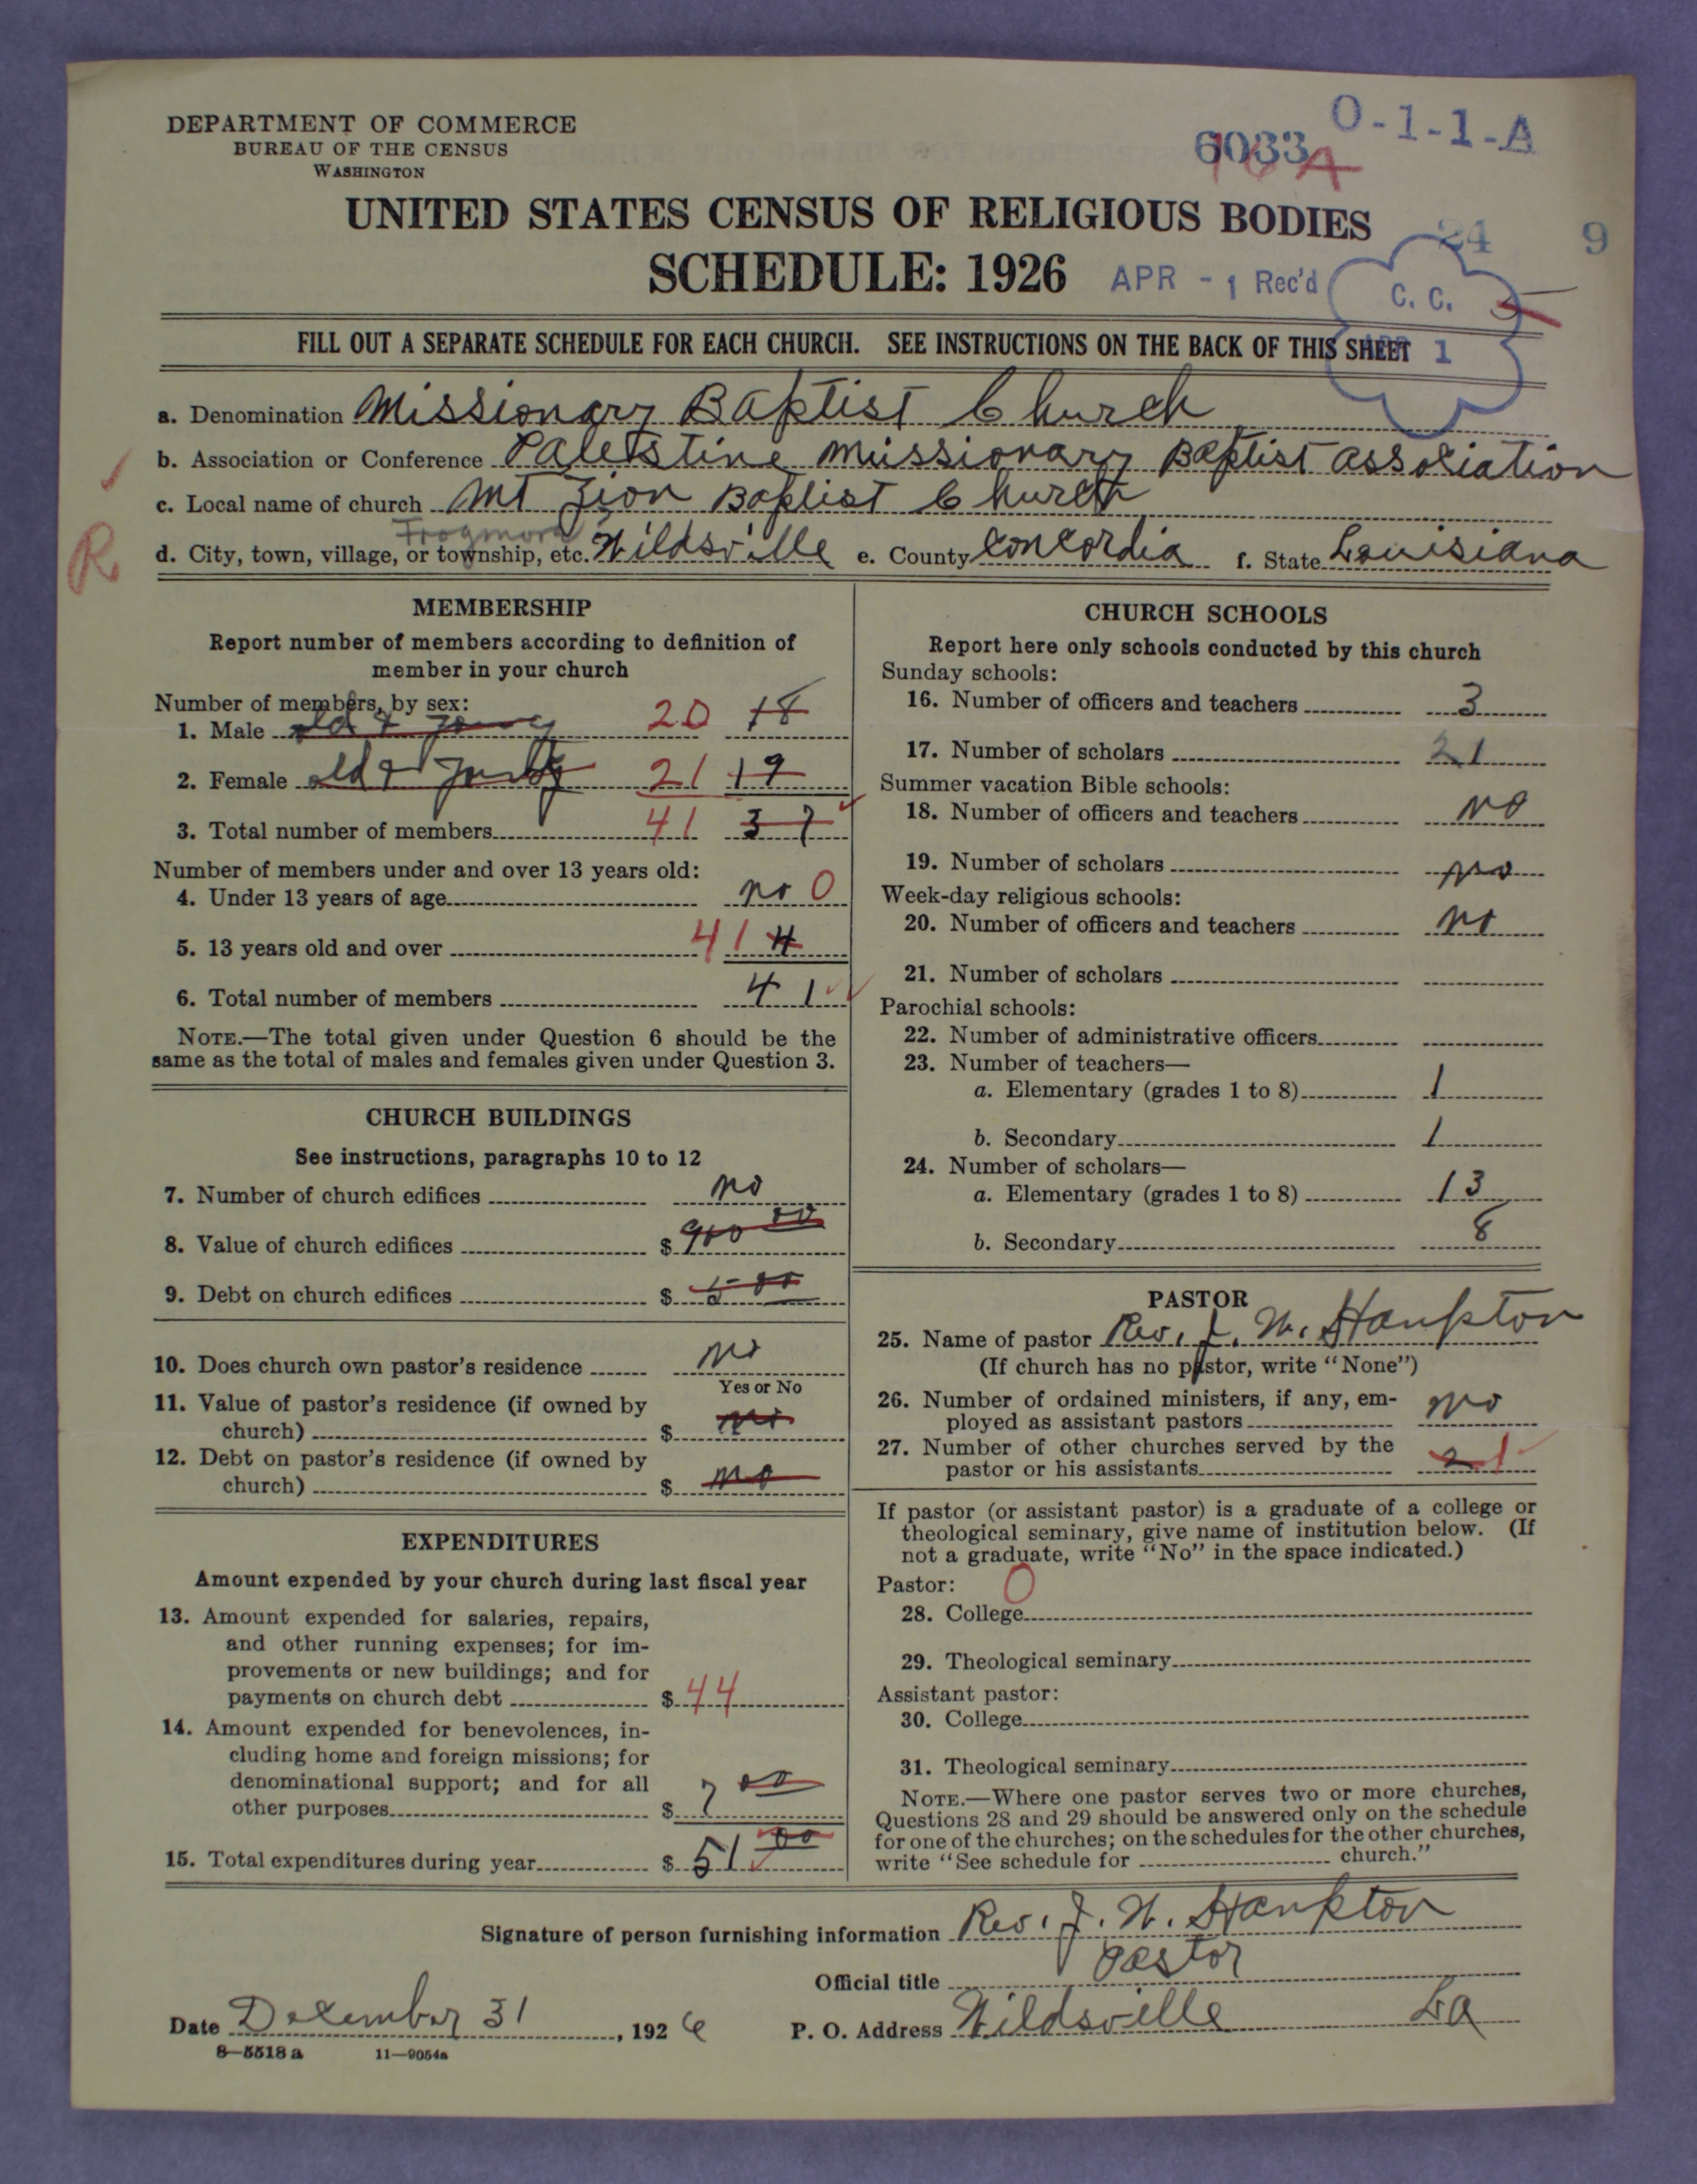 DEPARTMENT OF COMMERCE
BUREAU OF THE CENSUS
WASHINGTON
6033 O-1-1-A
UNITED STATES CENSUS OF RELIGIOUS BODIES
24 9
SCHEDULE: 1926 APR - 1 Rec'd C. C.
FILL OUT A SEPARATE SCHEDULE FOR EACH CHURCH. SEE INSTRUCTIONS ON THE BACK OF THIS SHEET 1
a. Denomination Missionary Baptist Church
b. Association or Conference Palestine missionary Baptist association
c. Local name of church Mt Zion Baptist Church
Frogmore
d. City, town, village, or township, etc. Wildsville e. County Concordia f. State Louisiana
R
MEMBERSHIP
Report number of members according to definition of
member in your church
Number of members, by sex:
1. Male old & young 20 18
2. Female old & 21 19
3. Total number of members 41 37
Number of members under and over 13 years old:
4. Under 13 years of age no 0
5. 13 years old and over 41
6. Total number of members 41
NOTE.—The total given under Question 6 should be the
same as the total of males and females given under Question 3.
CHURCH BUILDINGS
See instructions, paragraphs 10 to 12
7. Number of church edifices no
8. Value of church edifices $ 900 00
9. Debt on church edifices $ 5 00
10. Does church own pastor's residence no
Yes or No
11. Value of pastor's residence (if owned by
church) $ no
12. Debt on pastor's residence (if owned by
church) $ no
EXPENDITURES
Amount expended by your church during last fiscal year
13. Amount expended for salaries, repairs,
and other running expenses; for im-
provements or new buildings; and for
payments on church debt $ 44
14. Amount expended for benevolences, in-
cluding home and foreign missions; for
denominational support; and for all
other purposes $ 7 00
15. Total expenditures during year $ 51 00
CHURCH SCHOOLS
Report here only schools conducted by this church
Sunday schools:
16. Number of officers and teachers 3
17. Number of scholars 21
Summer vacation Bible schools:
18. Number of officers and teachers no
19. Number of scholars no
Week-day religious schools:
20. Number of officers and teachers no
21. Number of scholars
Parochial schools:
22. Number of administrative officers
23. Number of teachers—
a. Elementary (grades 1 to 8) 1
b. Secondary 1
24. Number of scholars—
a. Elementary (grades 1 to 8) 13
b. Secondary 8
PASTOR
25. Name of pastor Rev. J. W. Hankton
(If church has no pastor, write "None")
26. Number of ordained ministers, if any, em-
ployed as assistant pastors no
27. Number of other churches served by the
pastor or his assistants 2 1
If pastor (or assistant pastor) is a graduate of a college or
theological seminary, give name of institution below. (If
not a graduate, write "No" in the space indicated.)
Pastor: 0
28. College
29. Theological seminary
Assistant pastor:
30. College
31. Theological seminary
NOTE.—Where one pastor serves two or more churches,
Questions 28 and 29 should be answered only on the schedule
for one of the churches; on the schedules for the other churches,
write "See schedule for church."
Signature of person furnishing information Rev. J. W. Hankton
Official title Pastor
Date December 31, 1926 P. O. Address Wildsville La
8—5518 a 11—9054a